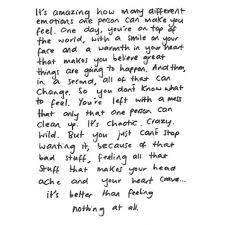 It's amazing how many different
emotions one person can make you
feel. One day, you're on top of
the world, with a smile on your
face and a warmth in your heart
that makes you believe great
things are going to happen. And then,
in a second, all of that can
change. So you don't know what
to feel. You're left with a mess
that only that one person can
clean up. It's chaotic. Crazy.
Wild. But you just can't stop
wanting it, because of that
bad stuff, feeling all that
stuff that makes your head
ache and your heart crave...
it's better than feeling
nothing at all.